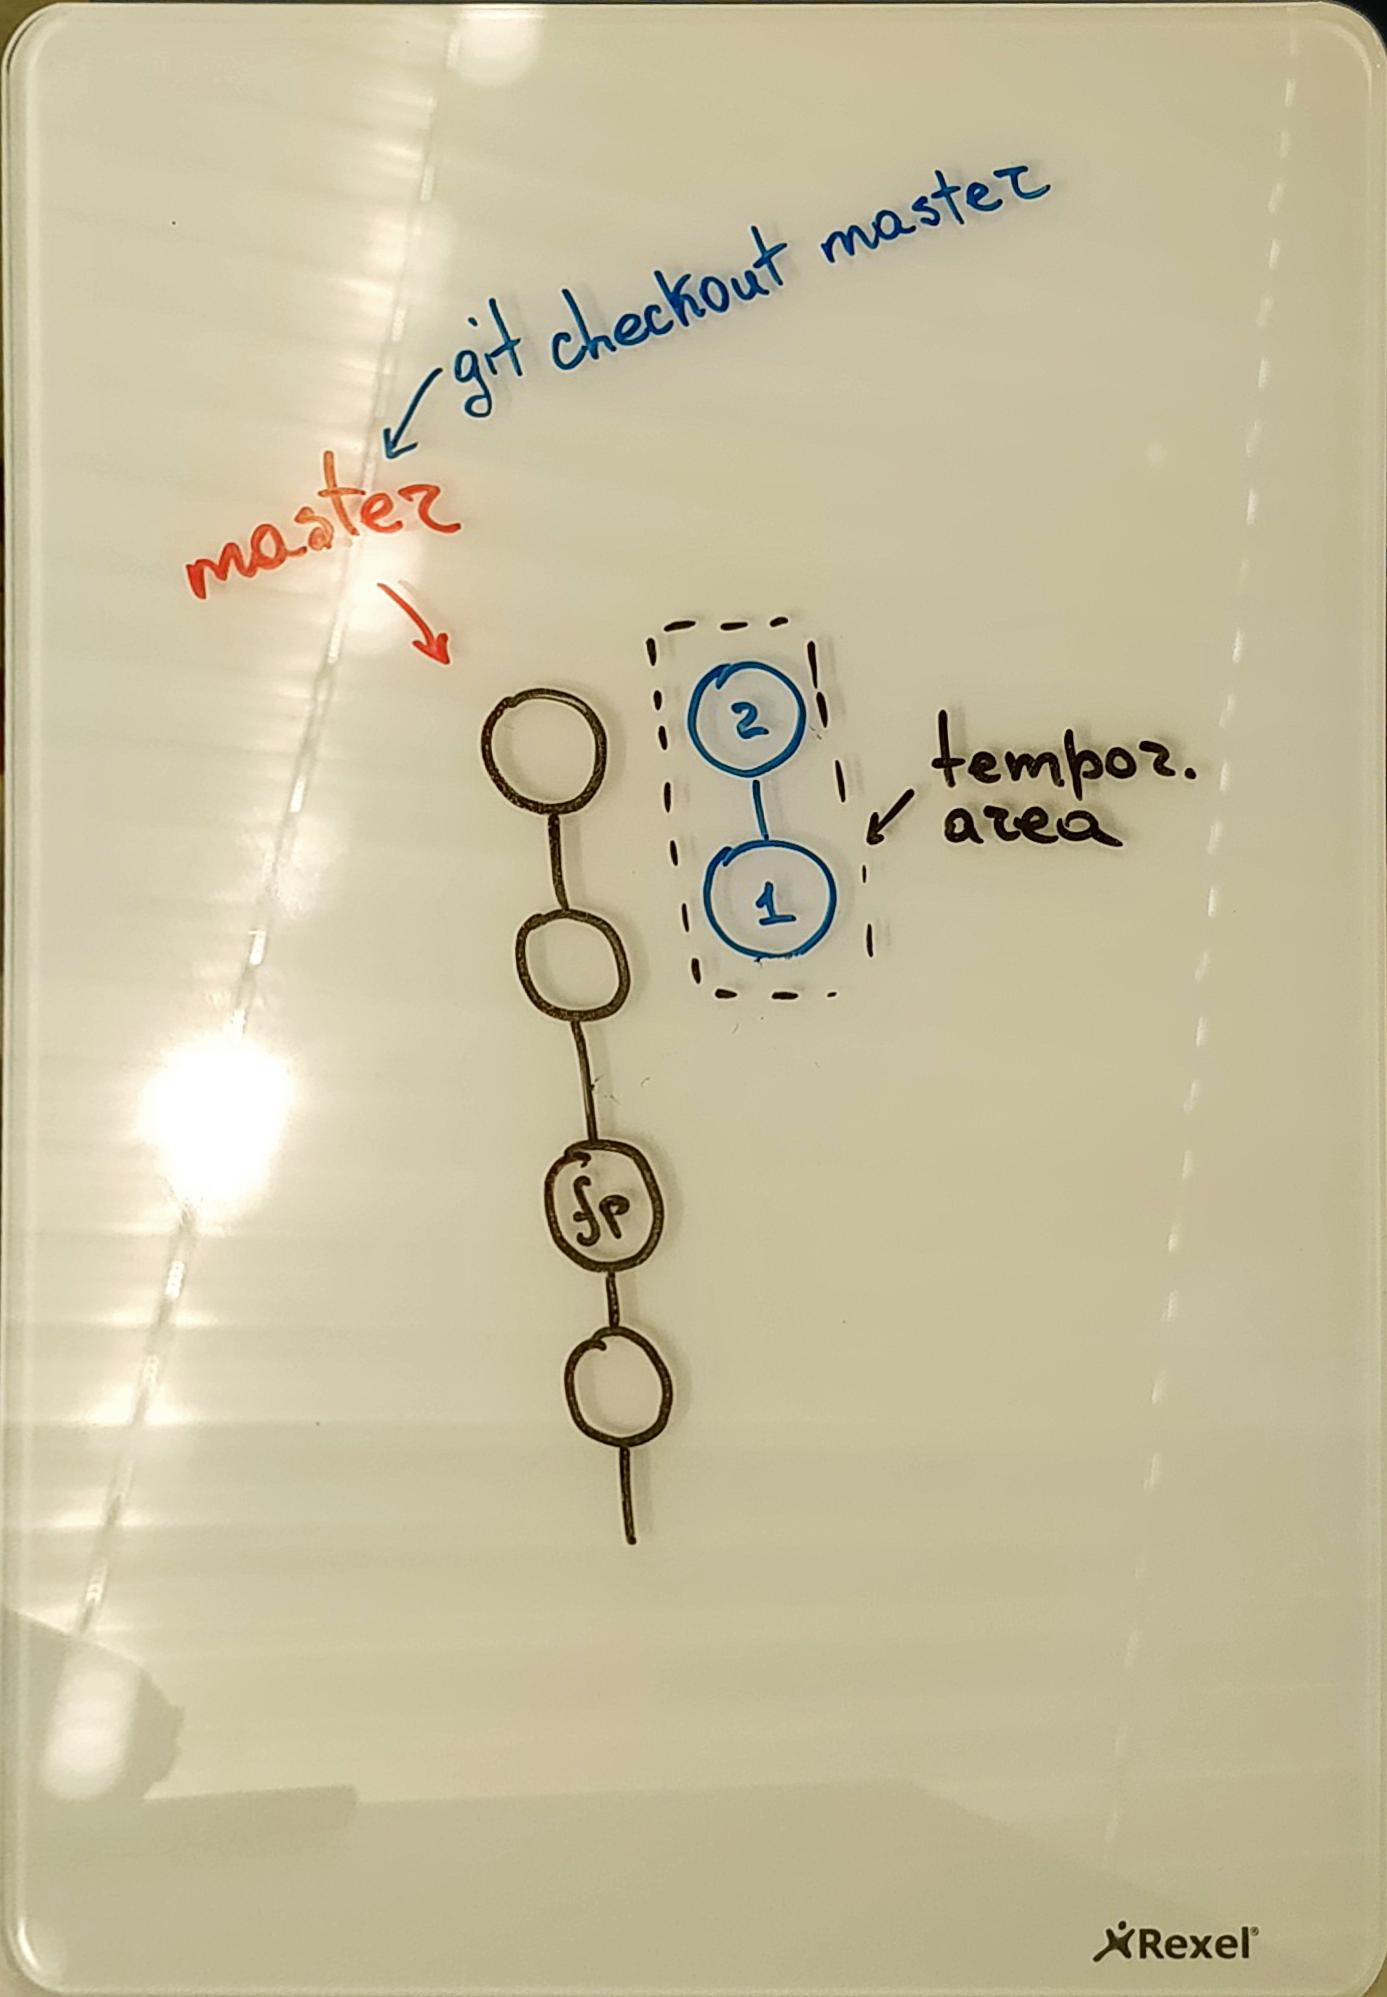 git checkout master
master
2
tempor.
area
1
fp
Rexel